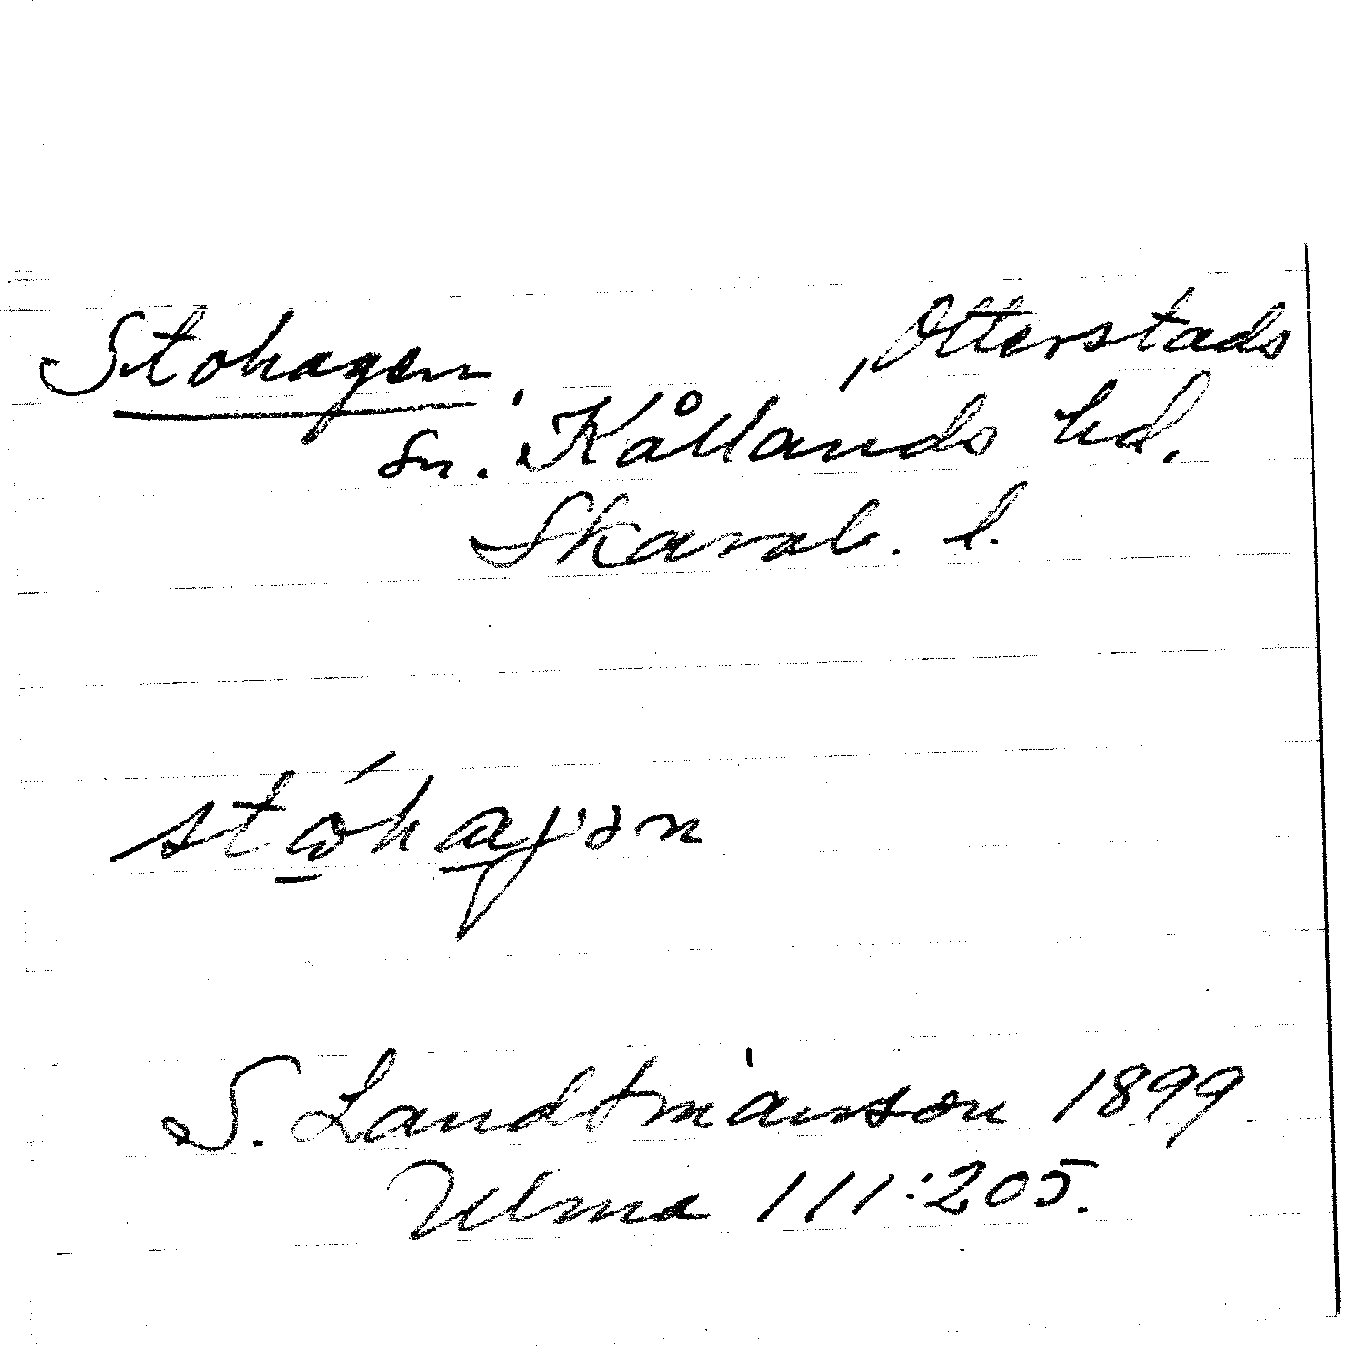 Stohagen, Otterstads
sn. Kållands hd.
Skarab. l.
stóhagən
S. Landtmanson 1899
Ulma 111:205.